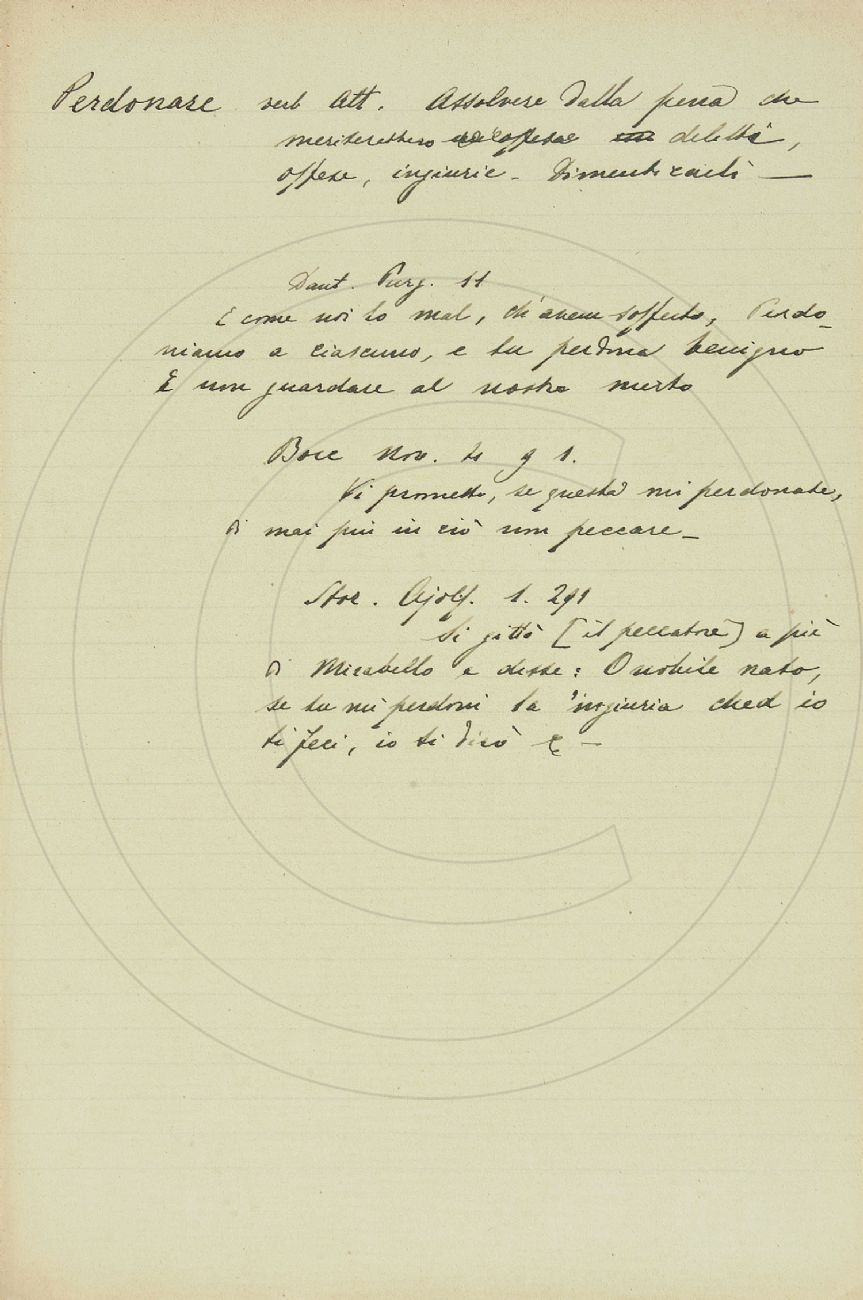 Perdonare verb Att. Assolvere dalla pena che
meriterebbero delitti,
offese, ingiurie - Dimenticarli —
Dant. Purg. 11
E come noi lo mal, ch'avem sofferto, Perdo-
niamo a ciascuno, e tu perdona benigno
E non guardare al nostro merto
Bocc Nov. 4 g 1.
Vi prometto, se questa mi perdonate,
di mai più in ciò non peccare -
Stor. Ajolf. 1. 291
Si gittò [il peccatore] a piè
di Mirabello e disse: O nobile nato,
se tu mi perdoni la 'ngiuria ched io
ti feci, io ti dirò &c -